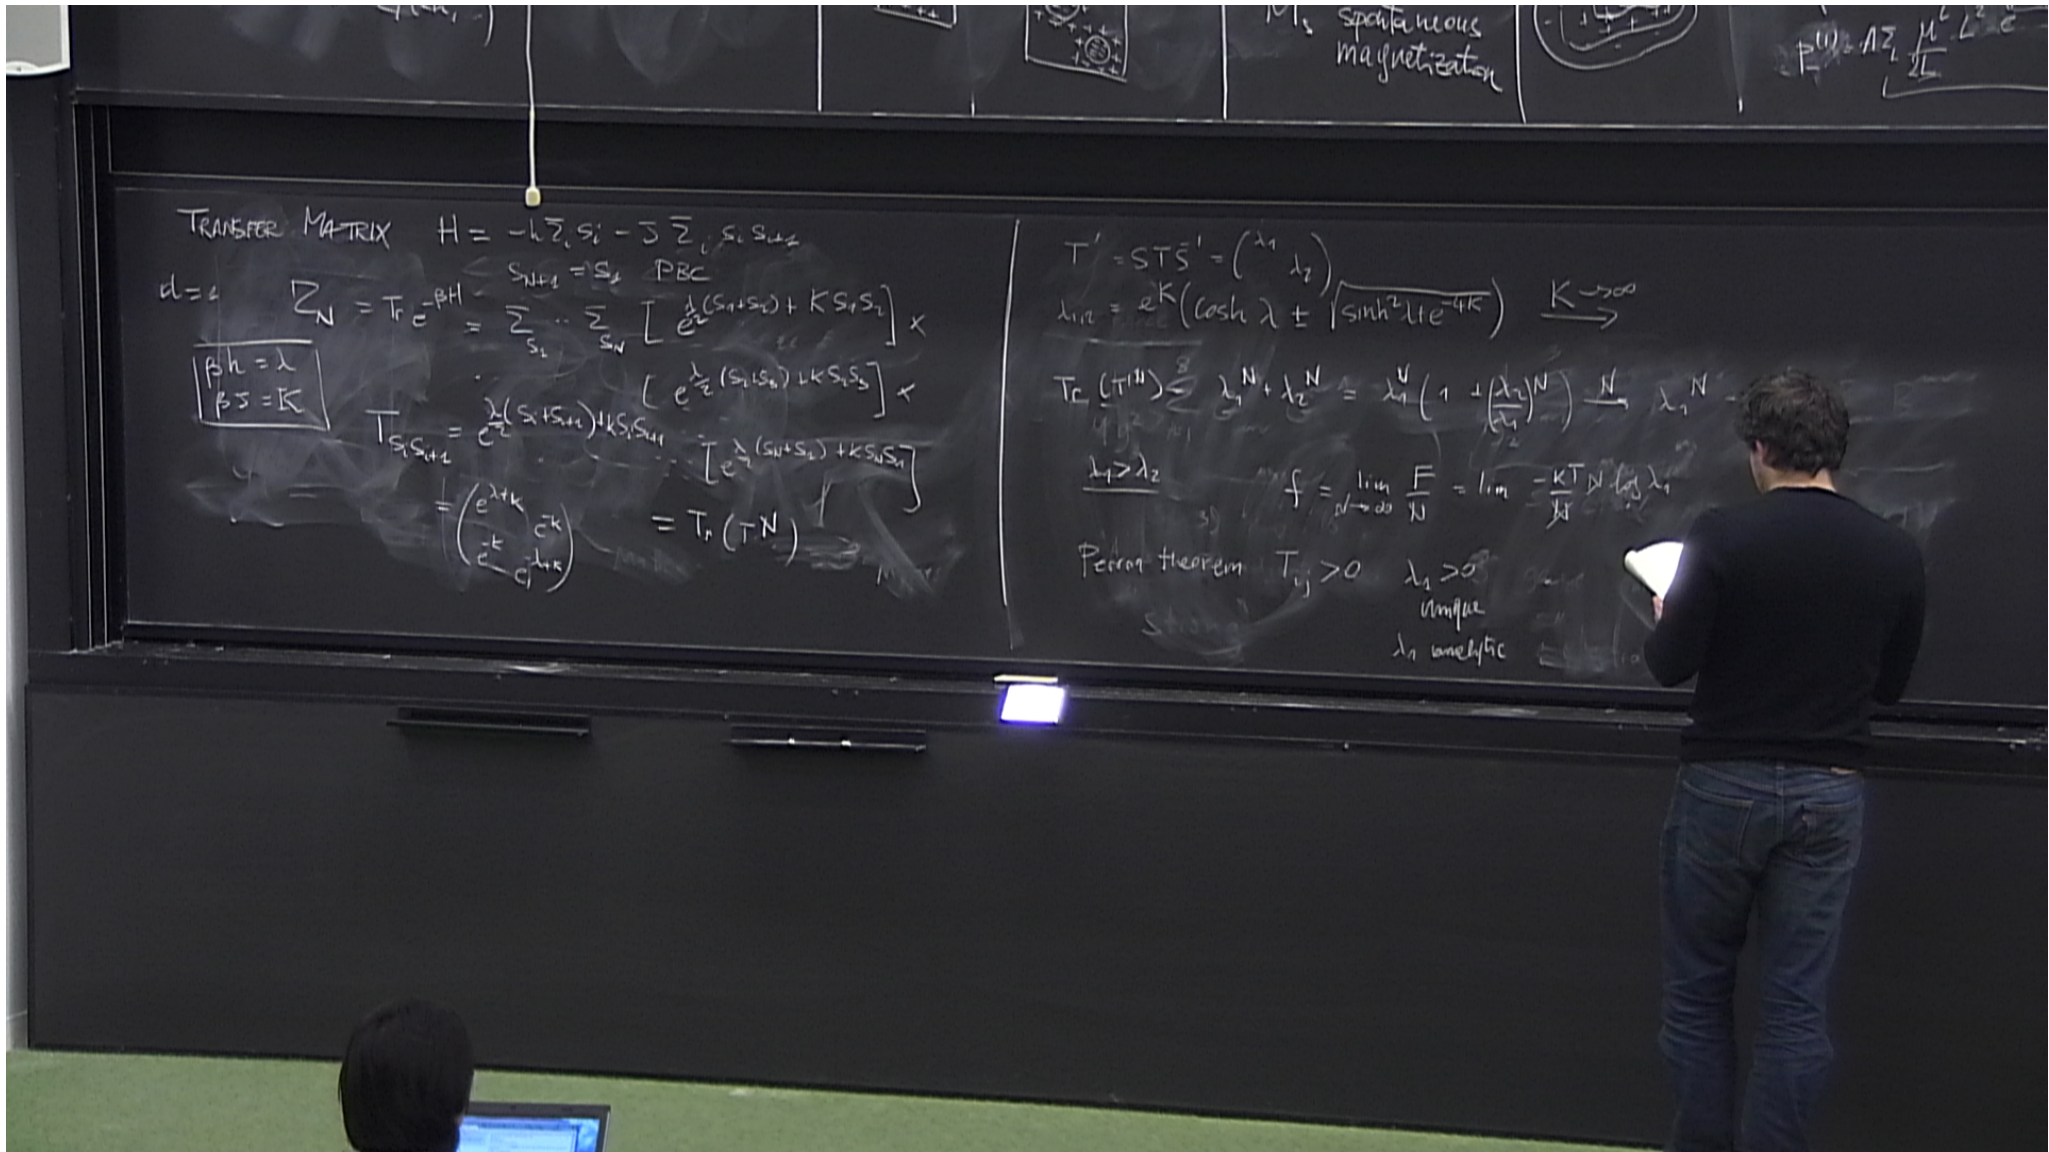 M_s spontaneous
magnetization
TRANSFER MATRIX H = -h Σ_i s_i - J Σ_i s_i s_{i+1}
s_{N+1} = s_1 PBC
d=1 Z_N = Tr e^{-βH} = Σ_{s_1} ·· Σ_{s_N} [ e^{λ/2 (s_1+s_2) + K s_1 s_2} ] ×
βh = λ
βJ = K
[ e^{λ/2 (s_2+s_3) + K s_2 s_3} ] ×
T_{s_i s_{i+1}} = e^{λ/2 (s_i+s_{i+1}) + K s_i s_{i+1}}
[ e^{λ/2 (s_N+s_1) + K s_N s_1} ]
= ( e^{λ+K} e^{-K}
e^{-K} e^{-λ+K} )
= Tr (T^N)
T' = S T S^{-1} = ( λ_1 λ_2 )
λ_{1,2} = e^K ( cosh λ ± √(sinh² λ + e^{-4K}) ) K→∞
Tr (T'^N) = λ_1^N + λ_2^N = λ_1^N ( 1 + (λ_2/λ_1)^N ) → N λ_1^N
λ_1 > λ_2
f = lim_{N→∞} F/N = lim -KT/N N log λ_1
Perron theorem T_{ij} > 0 λ_1 > 0
unique
λ_1 analytic